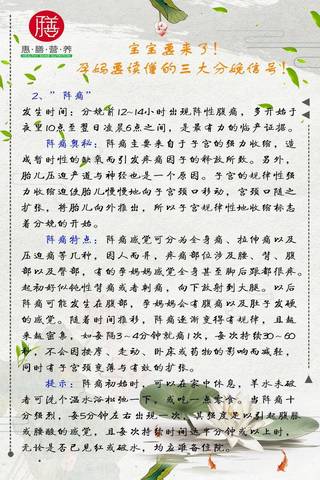 膳
惠·膳·营·养
宝宝要来了!
孕妈要读懂的三大分娩信号!
2、"阵痛"
发生时间:分娩前12~14小时出现阵性腹痛,多开始于
夜里10点至翌日凌晨5点之间,是最有力的临产证据。
阵痛奥秘:阵痛主要来自于子宫的强力收缩,造
成暂时性的缺氧而引发疼痛因子的释放所致。另外,
胎儿压迫产道与神经也是一个原因。子宫的规律性强
力收缩迫使胎儿慢慢地向子宫颈口移动,宫颈口随之
扩张,将胎儿向外推出,所以子宫规律性地收缩标志
着分娩的开始。
阵痛特点:阵痛感觉可分为全身痛、拉伸痛以及
压迫痛等几种,因人而异,疼痛部位涉及腰、背、腹
部以及臀部,有的孕妈妈感觉全身甚至脚后跟都很疼。
起初好似钝性背痛或者刺痛,向下放射到大腿。以后
阵痛可能发生在腹部,孕妈妈会有腹痛以及肚子发硬
的感觉。随着时间推移,阵痛逐渐变得有规律,且越
来越密集,如每隔3~4分钟就痛1次,每次持续30~60
秒,不会因按摩、走动、卧床或药物的影响而减轻,
同时有子宫颈变薄与有效的扩张。
提示:阵痛初始时,可以在家中休息,羊水未破
者可洗个温水浴松弛一下,或吃一点零食。当阵痛十
分强烈,每5分钟左右出现一次,其强度足以引起腹部
或腰酸的感觉,且每次持续时间达半分钟或以上时,
无论是否已见红或破水,均应准备住院。